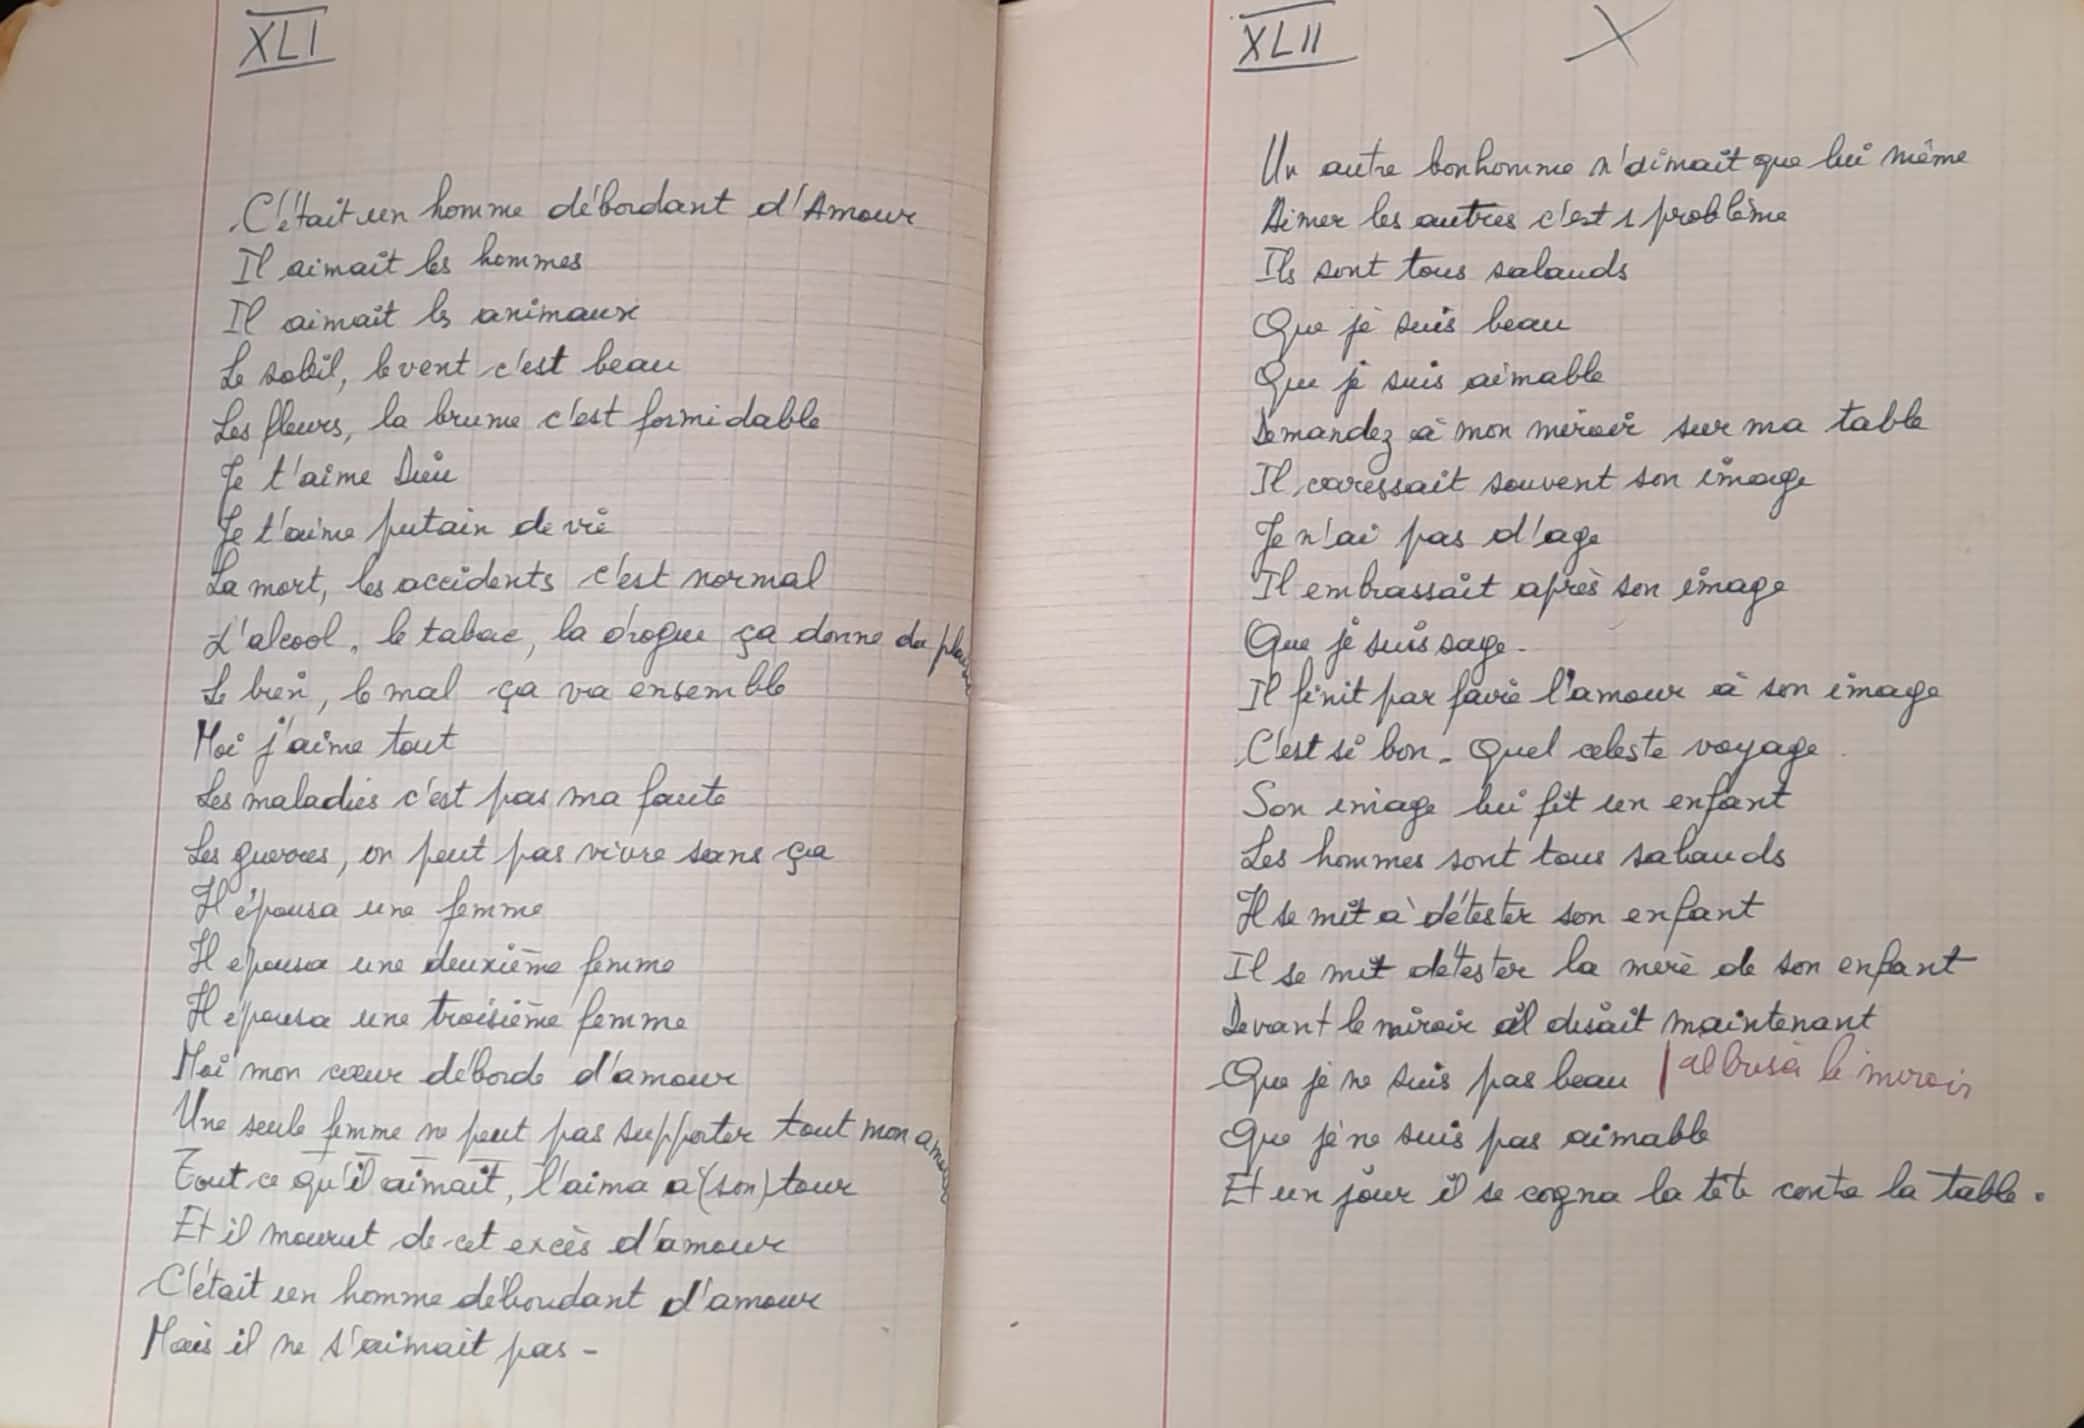 XLI
C'était un homme débordant d'Amour
Il aimait les hommes
Il aimait les animaux
Le soleil, le vent c'est beau
Les fleurs, la brume c'est formidable
Je t'aime Dieu
Je t'aime putain de vie
La mort, les accidents c'est normal
L'alcool, le tabac, la drogue ça donne du plaisir
Le bien, le mal ça va ensemble
Moi j'aime tout
Les maladies c'est pas ma faute
Les guerres, on peut pas vivre sans ça
Il épousa une femme
Il epousa une deuxième femme
Il épousa une troisième femme
Moi mon cœur déborde d'amour
Une seule femme ne peut pas supporter tout mon amour
Tout ce qu'il aimait, l'aima à (son) tour
Et il mourut de cet excès d'amour
C'était un homme débordant d'amour
Mais il ne s'aimait pas -
XLII X
Un autre bonhomme n'aimait que lui même
Aimer les autres c'est 1 problème
Ils sont tous salauds
Que je suis beau
Que je suis aimable
Demandez à mon miroir sur ma table
Il caressait souvent son image
Je n'ai pas d'age
Il embrassait après son image
Que je suis sage -
Il finit par faire l'amour à son image
C'est si bon - Quel celeste voyage
Son image lui fit un enfant
Les hommes sont tous salauds
Il se mit à détester son enfant
Il se mit détester la mère de son enfant
Devant le miroir il disait maintenant
Que je ne suis pas beau | il brisa le miroir
Que je ne suis pas aimable
Et un jour il se cogna la tête contre la table.